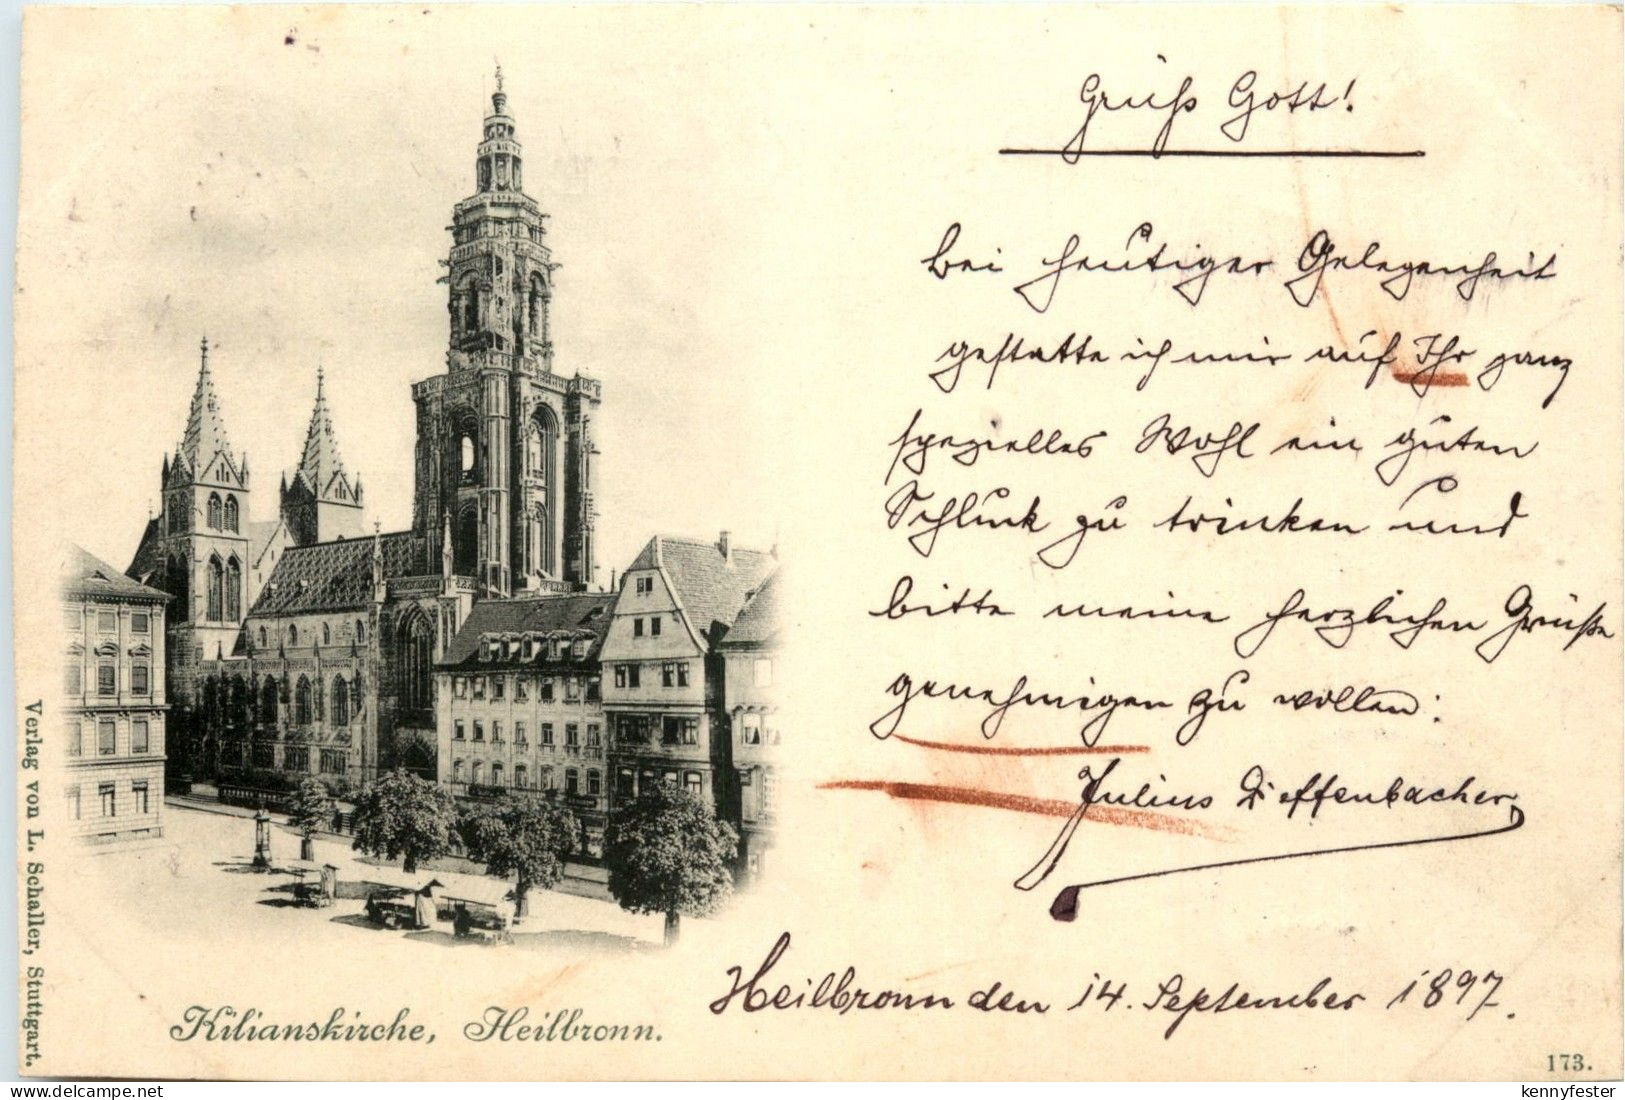 Grüß Gott!
Bei heutiger Gelegenheit
gestatte ich mir auf Ihr ganz
spezielles Wohl ein guten
Schluck zu trinken und
bitte meine herzlichen Grüße
genehmigen zu wollen:
Julius Dieffenbacher
Heilbronn den 14. September 1897.
Kilianskirche, Heilbronn.
Verlag von L. Schaller, Stuttgart.
173.
www.delcampe.net
kennyfester